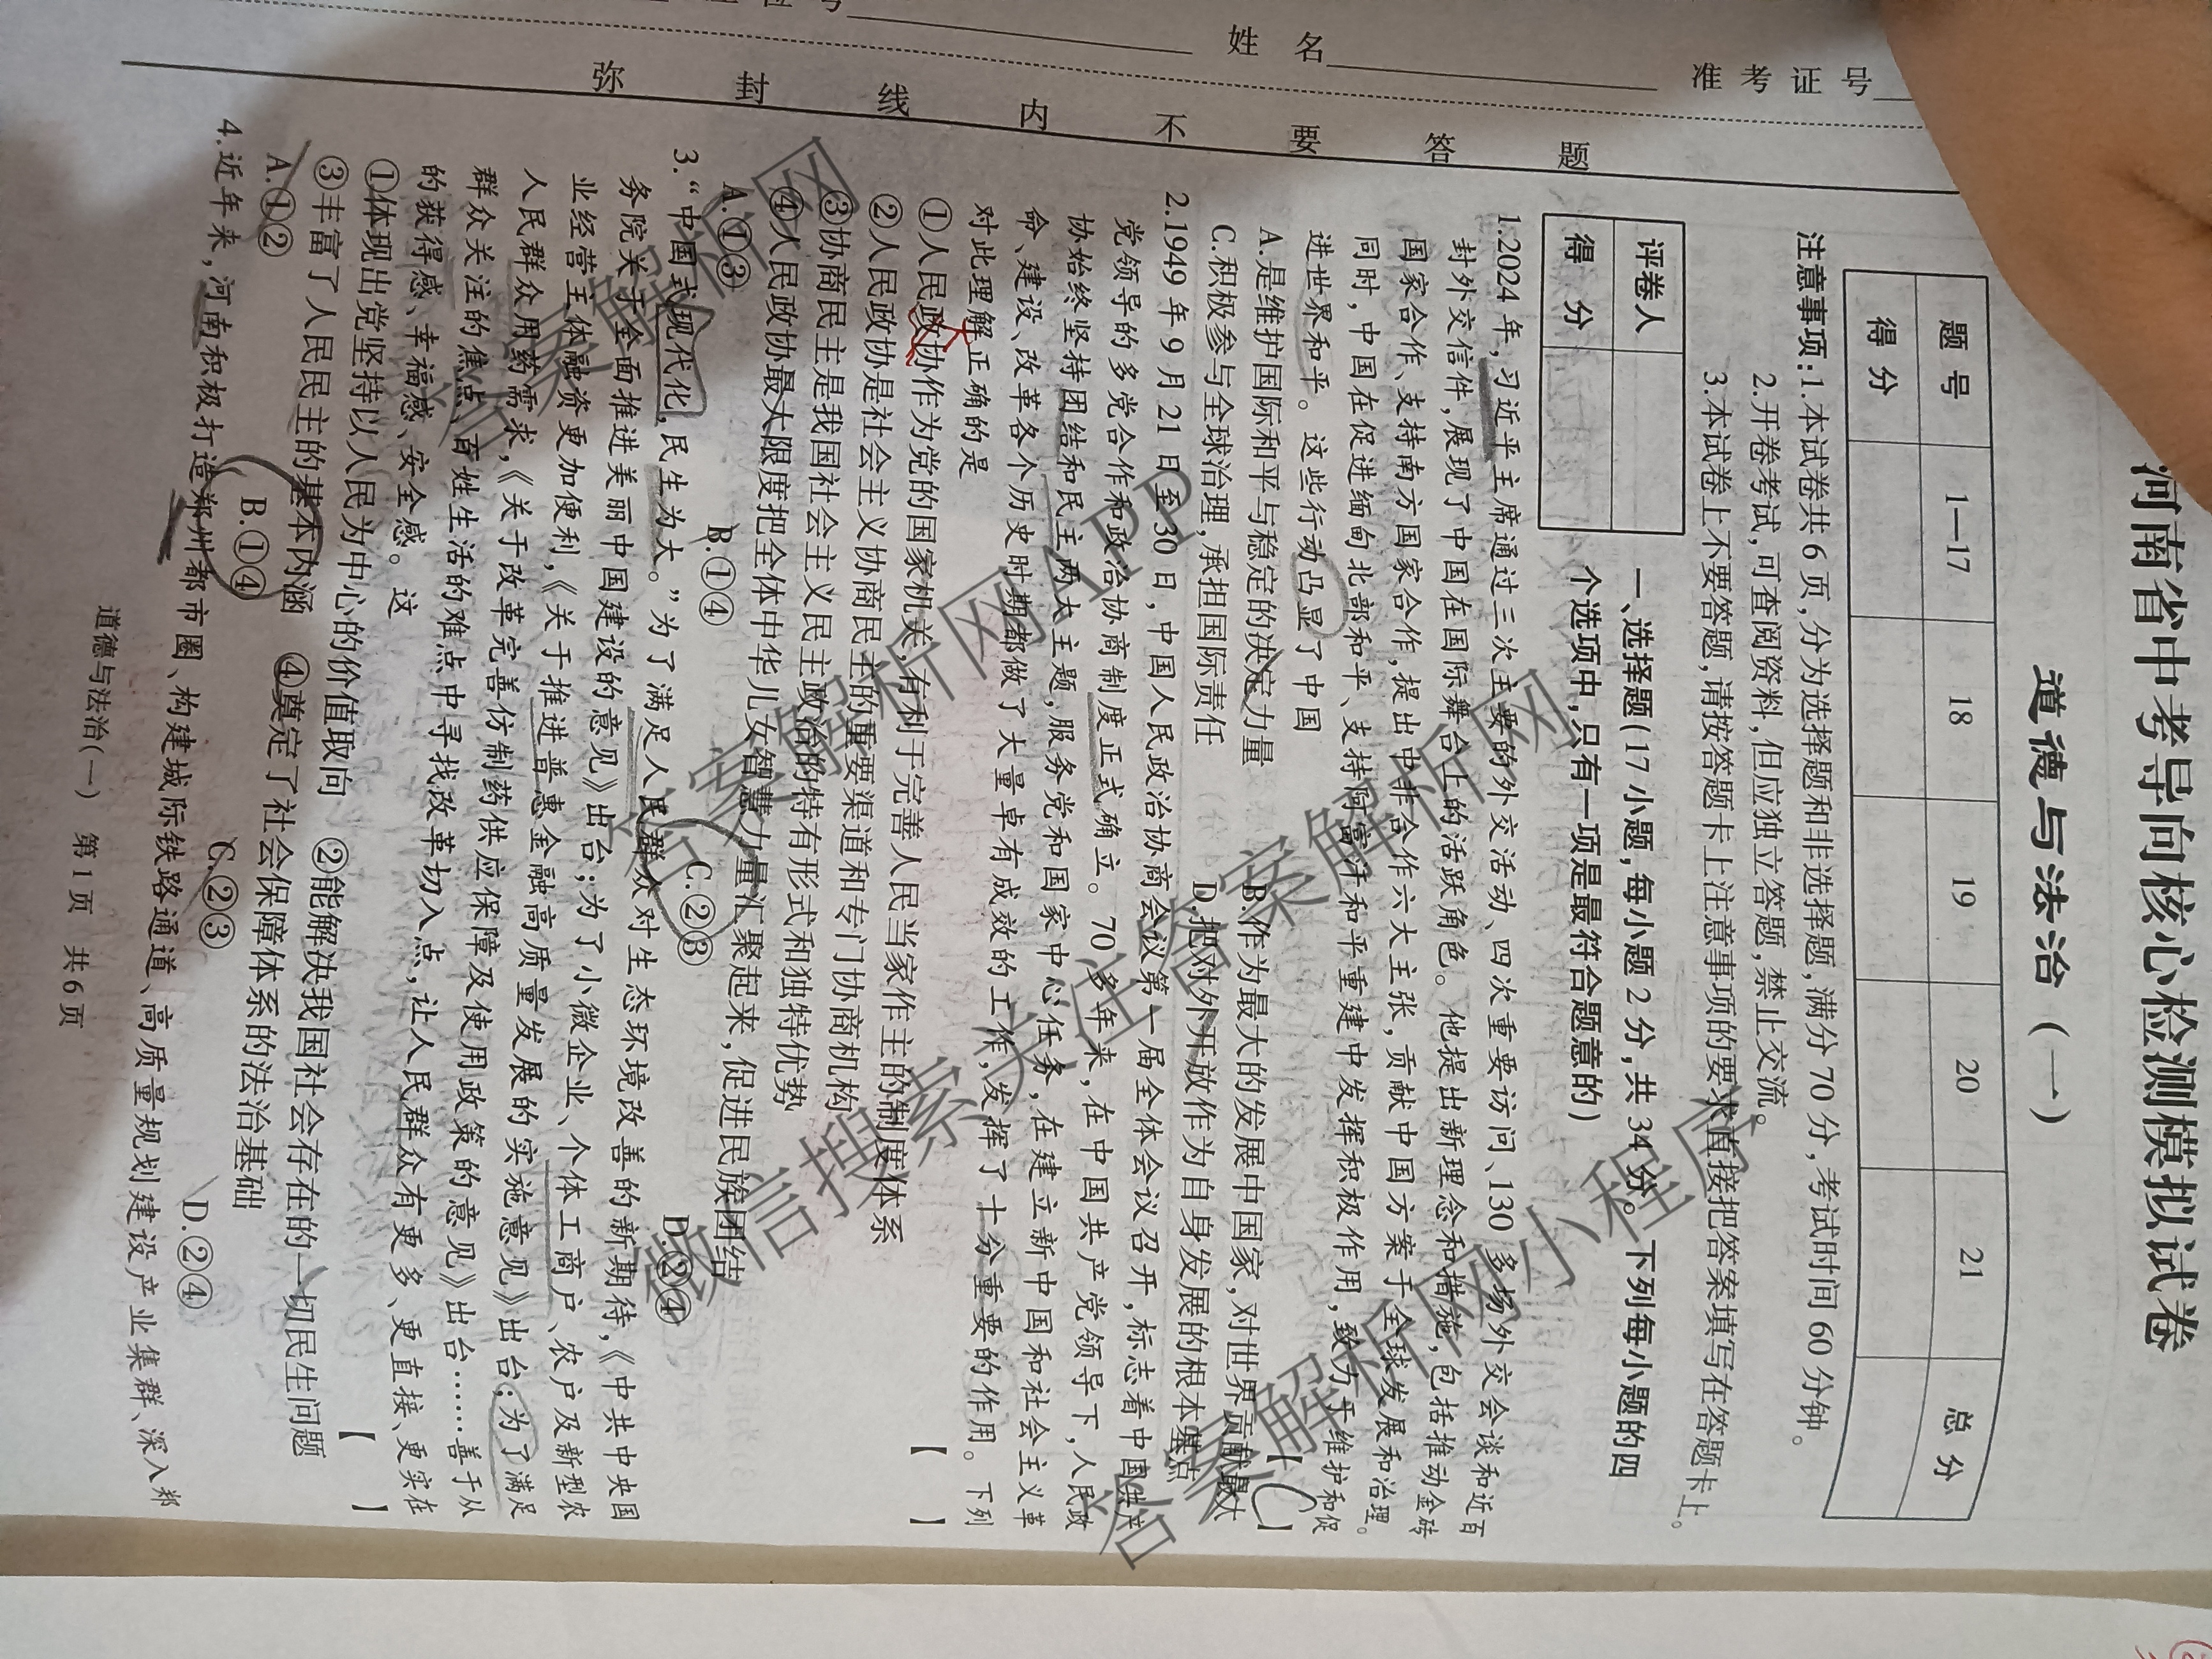 准考证号
姓 名
弥 封 线 内 不 要 答 题
河南省中考导向核心检测模拟试卷
道德与法治（一）
题号 1—17 18 19 20 21 总分
得分
注意事项：1.本试卷共6页，分为选择题和非选择题，满分70分，考试时间60分钟。
2.开卷考试，可查阅资料，但应独立答题，禁止交流。
3.本试卷上不要答题，请按答题卡上注意事项的要求直接把答案填写在答题卡上。
评卷人
得 分
一、选择题（17小题，每小题2分，共34分。下列每小题的四
个选项中，只有一项是最符合题意的）
1.2024年，习近平主席通过三次主要的外交活动、四次重要访问、130多场外交会谈和近百
封外交信件，展现了中国在国际舞台上的活跃角色。他提出新理念和措施，包括推动金砖
国家合作、支持南方国家合作，提出中非合作六大主张，贡献中国方案于全球发展和治理。
同时，中国在促进缅甸北部和平、支持阿富汗和平重建中发挥积极作用，致力于维护和促
进世界和平。这些行动凸显了中国 【C】
A.是维护国际和平与稳定的决定力量 B.作为最大的发展中国家，对世界贡献最大
C.积极参与全球治理，承担国际责任 D.把对外开放作为自身发展的根本基点
2.1949年9月21日至30日，中国人民政治协商会议第一届全体会议召开，标志着中国共产
党领导的多党合作和政治协商制度正式确立。70多年来，在中国共产党领导下，人民政
协始终坚持团结和民主两大主题，服务党和国家中心任务，在建立新中国和社会主义革
命、建设、改革各个历史时期都做了大量卓有成效的工作，发挥了十分重要的作用。下列
对此理解正确的是 【 】
①人民政协作为党的国家机关，有利于完善人民当家作主的制度体系
②人民政协是社会主义协商民主的重要渠道和专门协商机构
③协商民主是我国社会主义民主政治的特有形式和独特优势
④人民政协最大限度把全体中华儿女智慧力量汇聚起来，促进民族团结
A.①③ B.①④ C.②③ D.②④
3.“中国式现代化，民生为大。”为了满足人民群众对生态环境改善的新期待，《中共中央国
务院关于全面推进美丽中国建设的意见》出台；为了小微企业、个体工商户、农户及新型农
业经营主体融资更加便利，《关于推进普惠金融高质量发展的实施意见》出台；为了满足
人民群众用药需求，《关于改革完善仿制药供应保障及使用政策的意见》出台……善于从
群众关注的焦点、百姓生活的难点中寻找改革切入点，让人民群众有更多、更直接、更实在
的获得感、幸福感、安全感。这 【 】
①体现出党坚持以人民为中心的价值取向 ②能解决我国社会存在的一切民生问题
③丰富了人民民主的基本内涵 ④奠定了社会保障体系的法治基础
A.①② B.①④ C.②③ D.②④
4.近年来，河南积极打造郑州都市圈、构建城际铁路通道、高质量规划建设产业集群、深入郑
道德与法治（一） 第1页 共6页
微信搜索关注答案解析网
答案解析网小程序
答案解析网APP
答案解析网